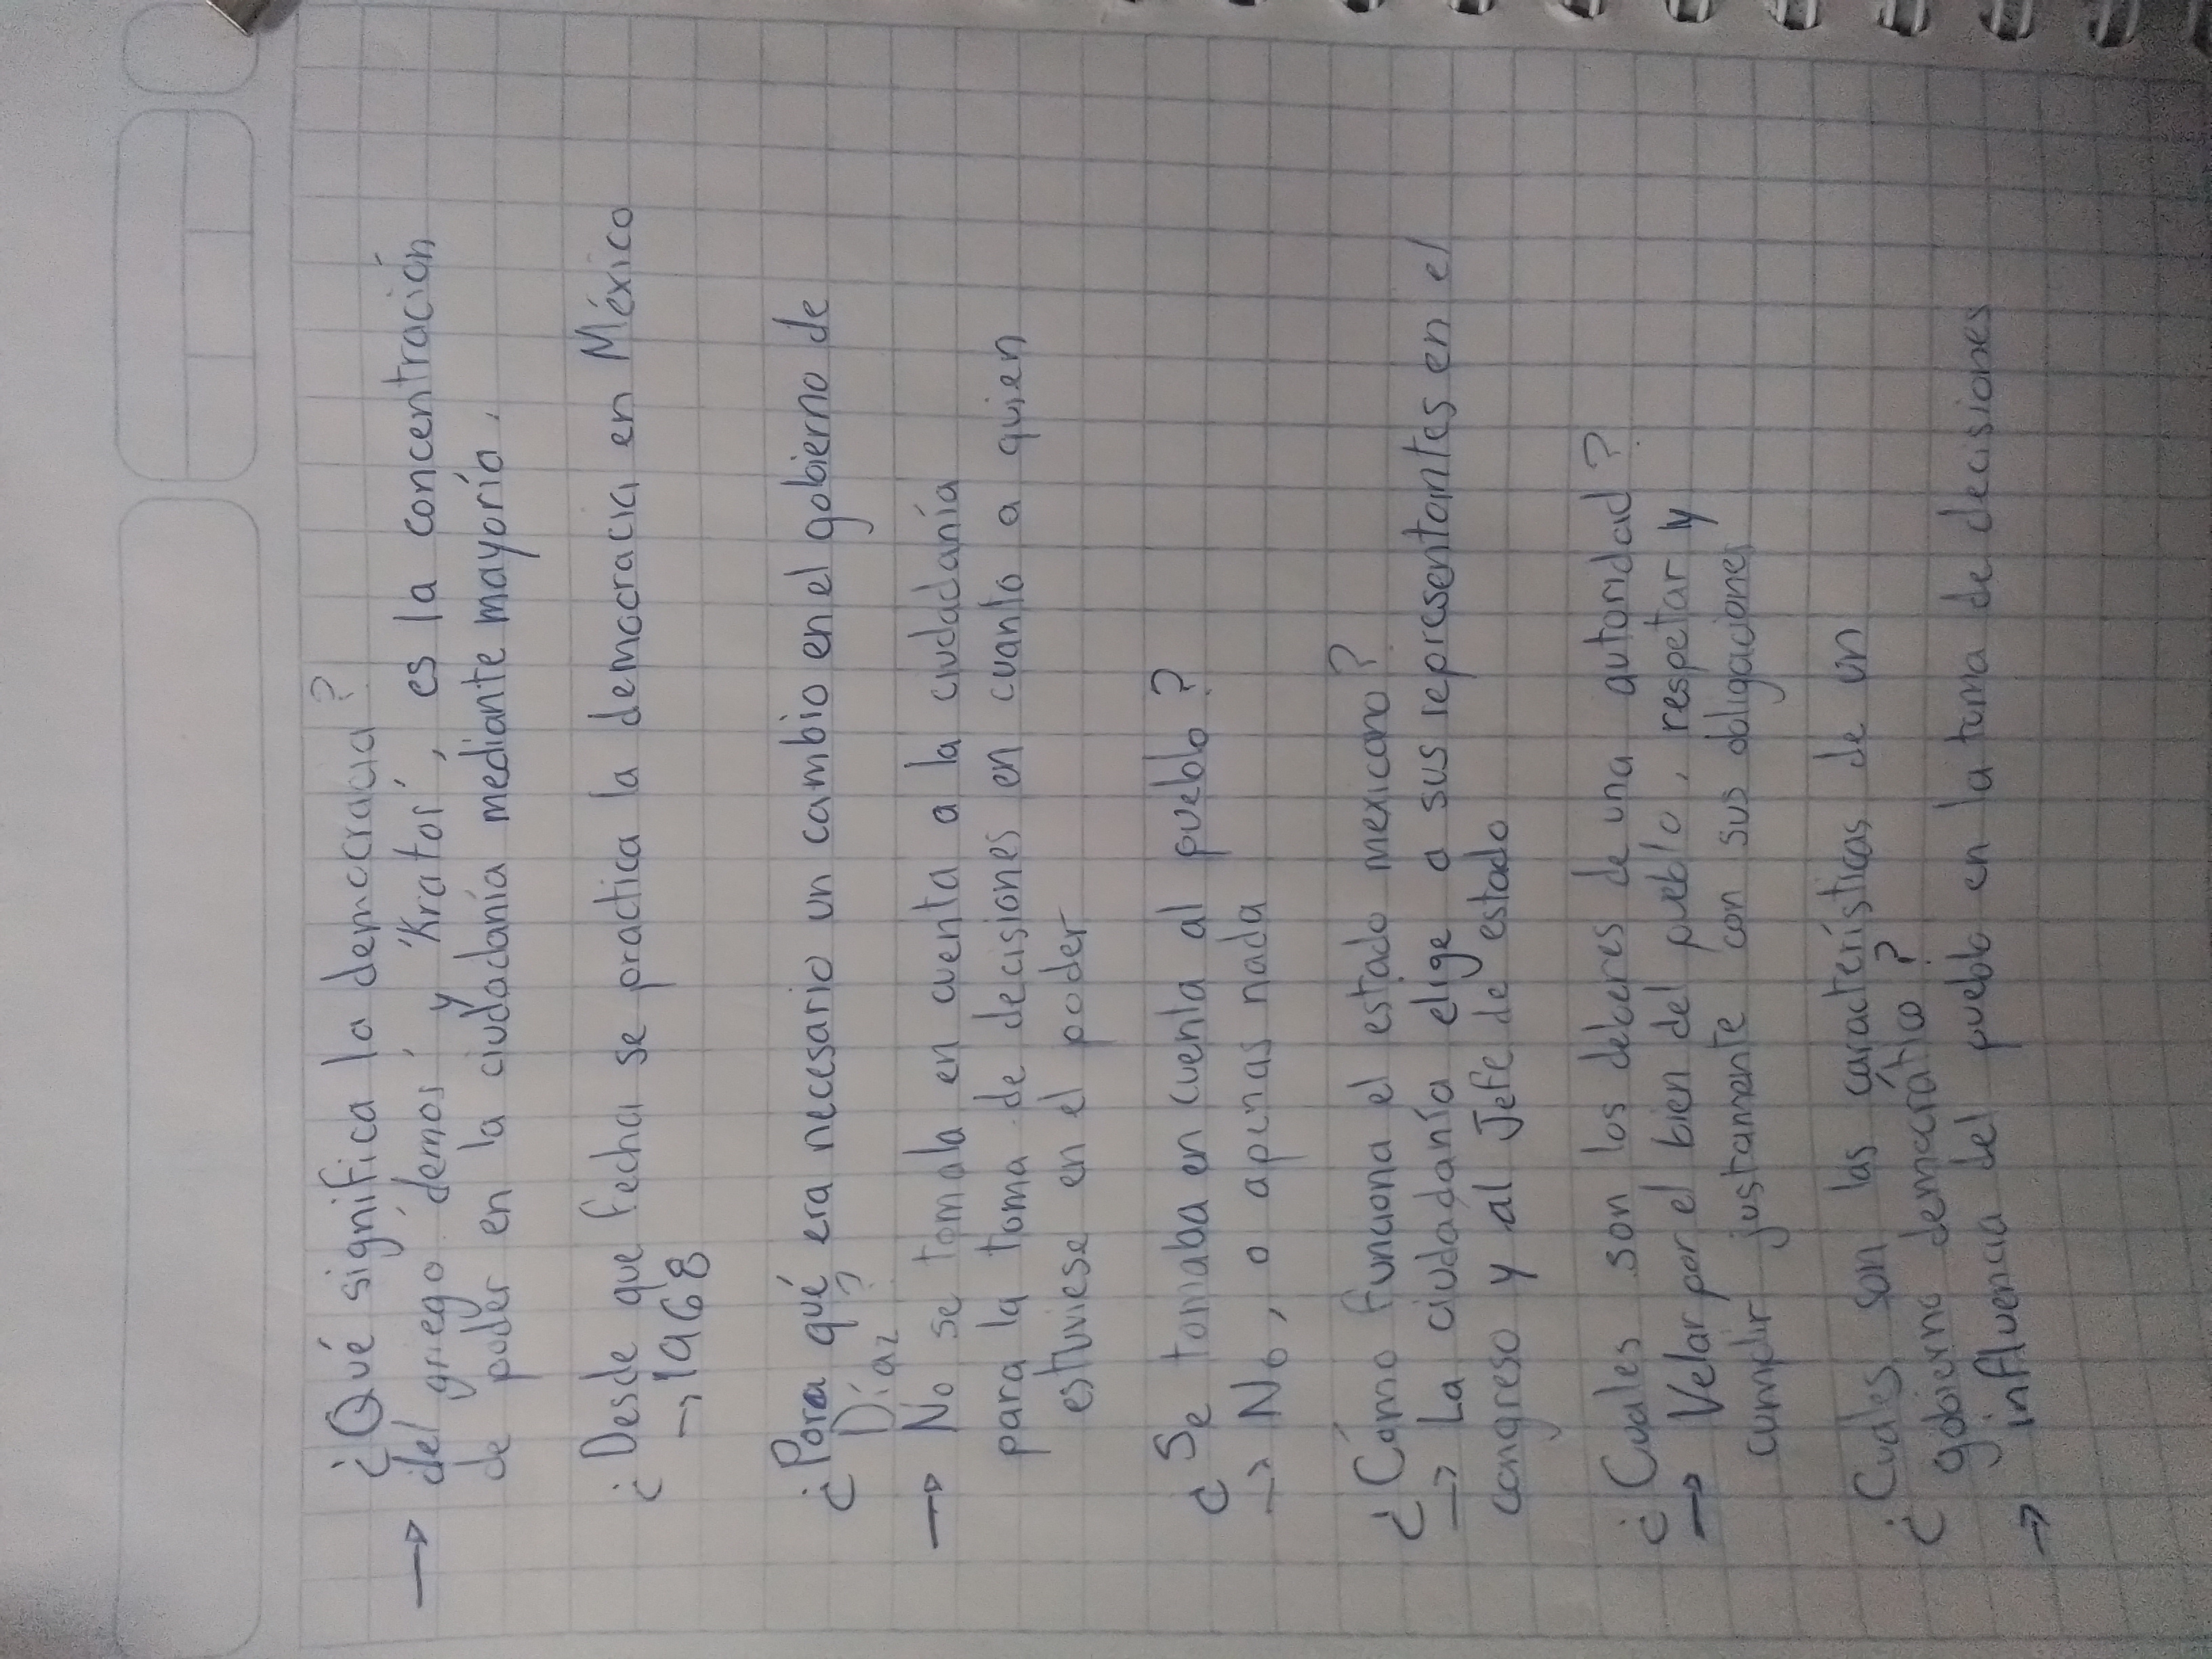 ¿Qué significa la democracia?
→ del griego 'demos' y 'Kratos', es la concentración
de poder en la ciudadanía mediante mayoría.
¿Desde que fecha se practica la democracia en México
→ 1968
¿Para qué era necesario un cambio en el gobierno de
Díaz?
→ No se tomaba en cuenta a la ciudadanía
para la toma de decisiones en cuanto a quien
estuviese en el poder
¿Se tomaba en cuenta al pueblo?
→ No, o apenas nada
¿Cómo funciona el estado mexicano?
→ La ciudadanía elige a sus representantes en el
congreso y al Jefe de estado
¿Cuales son los deberes de una autoridad?
→ Velar por el bien del pueblo, respetar y
cumplir justamente con sus obligaciones
¿Cuales son las características de un
gobierno democrático?
→ influencia del pueblo en la toma de decisiones